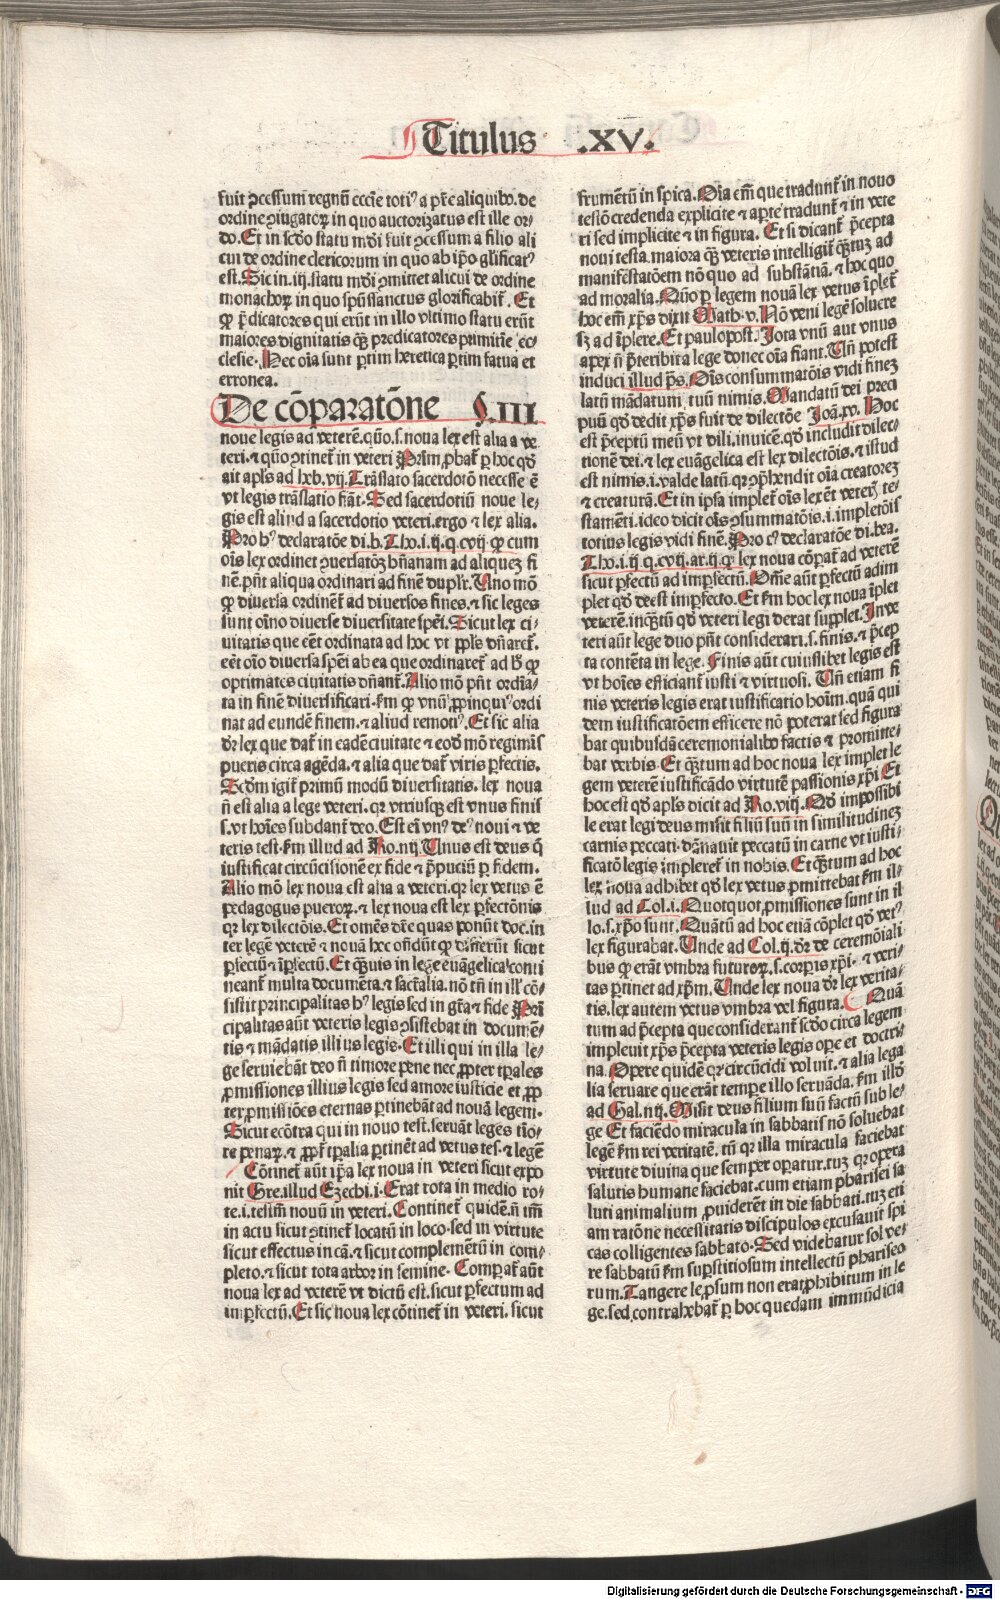 Titulus .XV.
fuit ꝓcessum regnū eccīe toti⁹ a pr̄e aliquibꝰ. de
ordine ꝯiugatoꝝ in quo auctorizatus est ille or⸗
do. Et in scd̄o statu mūdi fuit ꝓcessum a filio ali
cui de ordine clericorum in quo ab ip̄o gl̄ificat⁹
est. Sic in .iij. statu mūdi ꝓmittet alicui de ordine
monachoꝝ in quo spūssanctus glorificabit̄. Et
ꝙ p̄dicatores qui erūt in illo vltimo statu erūt
maiores dignitatis qꝫ predicatores primitie ec⸗
clesie. Hec oīa sunt ꝑtim heretica ꝑtim fatua et
erronea.
De cōparatōne §.III
noue legis ad veterē. quō .s. noua lex est alia a ve
teri. ⁊ quō ꝯtinet̄ in veteri Prīm ꝓbat̄ ꝑ hoc qd̄
ait apl̄s ad heb. vij. Trāslato sacerdotō necesse ē
vt legis trāslatio fiat. Sed sacerdotiū noue le⸗
gis est aliud a sacerdotio veteri. ergo ⁊ lex alia.
Pro h⁹ declaratōe di. b. Tho. i. ij. q. cvij ꝙ cum
oīs lex ordinet ꝯuersatōꝫ hūanam ad aliquem fi
nē. pn̄t aliqua ordinari ad finē duplr̄. Uno mō
ꝙ diuersa ordinent̄ ad diuersos fines. ⁊ sic leges
sunt oīno diuerse diuersitate spēi. Sicut lex ci⸗
uitatis que eēt ordinata ad hoc vt ppl̄s dn̄aret̄.
eēt oīo diuersa spēi ab ea que ordinaret̄ ad h̄ ꝙ
optimates ciuitatis dn̄ant̄. Alio mō pn̄t ordīa⸗
ta in finē diuersificari. fm ꝙ vnū ꝓpinqui⁹ ordi
nat ad eundē finem. ⁊ aliud remoti⁹. Et sic alia
dr̄ lex que dat̄ in eadē ciuitate ⁊ eodē mō regimīs
pueris circa agēda. ⁊ alia que dat̄ viris ꝑfectis.
Scd̄m igit̄ primū modū diuersitatis. lex noua
n̄ est alia a lege veteri. qꝛ vtriusqꝫ est vnus finis
.s. vt hoīes subdant̄ deo. Est ei vn⁹ de⁹ noui ⁊ ve
teris test. fm illud ad Ro. iij. Unus est deus q̄
iustificat circūcisionē ex fide ⁊ p̄puciū ꝑ fidem.
Alio mō lex noua est alia a veteri. qꝛ lex vetus ē
pedagogus pueroꝝ. ⁊ lex noua est lex ꝑfectōnis
qꝛ lex dilectōis. Et omēs dn̄e quas ponūt doc. in
ter legē veterē ⁊ nouā hec ondūt̄ ꝙ differūt sicut
ꝑfectū ⁊ īꝑfectū. Et qꝫuis in lege euāgelica conti
neant̄ multa documēta. ⁊ sacr̄alia. nō tn̄ in ill̄ cō⸗
sistit principalitas h⁹ legis sed in gr̄a ⁊ fide Pri
cipalitas aūt veteris legis ꝯsistebat in documē⸗
tis ⁊ mādatis illius legis. Et illi qui in illa le⸗
ge seruiebāt deo n̄ timore pene nec ꝓpter tꝑales
ꝓmissiones illius legis sed amore iusticie et ꝓp
ter ꝓmissiōes eternas ꝑtinebāt ad nouā legem.
Sicut ecōtra qui in nouo test. seruāt leges tīo⸗
re penaꝝ. ⁊ ꝓpt̄ tꝑalia ꝑtinēt ad vetus tes. ⁊ legē
Cōtinet̄ aūt ip̄a lex noua in veteri sicut expo
nit Gre. illud Ezechi. i. Erat rota in medio ro⸗
te .i. testm̄ nouū in veteri. Continet̄ quidē. n̄ im̄
in actu sicut ꝯtinet̄ locatū in loco. sed in virtute
sicut effectus in cā. ⁊ sicut complemētū in com⸗
pleto. ⁊ sicut tota arbor in semine. Compat̄ aūt
noua lex ad veterē vt dictū est. sicut ꝑfectum ad
inꝑfectū. Et sic noua lex cōtinet̄ in veteri. sicut
frumētū in spica. Oīa em̄ que tradunt̄ in nouo
testō credenda explicite ⁊ aꝑte tradunt̄ ⁊ in vete
ri sed implicite ⁊ in figura. Et si dicant̄ p̄cepta
noui testa. maiora qꝫ veteris intelligit̄ qꝫtuꝫ ad
manifestatōem nō quo ad substātiā. ⁊ hoc quo
ad moralia. Quō ꝑ legem nouā lex vetus īplet̄
hoc em̄ xp̄s dixit Math. v. Nō veni legē soluere
sꝫ ad īplere. Et paulopost. Iota vnū aut vnus
apex n̄ p̄teribit a lege donec oīa fiant. Un̄ potest
induci illud ps̄. Oīs consummatōis vidi fineꝫ
latū mādatum tuū nimis. Mandatū dei preci
puū qd̄ dedit xp̄s fuit de dilectōe Joā. xv. Hoc
est p̄ceptū meū vt dili. inuicē. qd̄ includit dilec⸗
tionē dei. ⁊ lex euāgelica est lex dilectōis. ⁊ istud
est nimis .i. valde latū. qꝛ ꝯp̄hendit oīa creatoreꝫ
⁊ creaturā. Et in ipsa implet̄ oīs lex ⁊ veteꝝ te⸗
stamēti. ideo dicit oīs ꝯsummatōis .i. impletōis
totius legis vidi finē. Pro c⁹ declaratōe di. bea.
Tho. i. ij. q. cvij. ar. ij. qꝛ lex noua cōpat̄ ad veterē
sicut ꝑfectū ad imꝑfectū. Om̄e aūt ꝑfectū adim
plet qd̄ deest imꝑfecto. Et fm hoc lex noua īplet
veterē. inqꝫtū qd̄ veteri legi derat supplet. In ve
teri aūt lege duo pn̄t considerari .s. finis. ⁊ p̄cep
ta contēta in lege. Finis aūt cuiuslibet legis est
vt hoīes efficiant̄ iusti ⁊ virtuosi. Un̄ etiam fi
nis veteris legis erat iustificatio hoīm. quā qui
dem iustificatōem efficere nō poterat sed figura
bat quibusdā ceremonialibꝰ factis ⁊ promitte⸗
bat verbis. Et qꝫtum ad hoc noua lex implet le
gem veterē iustificādo virtutē passionis xp̄i Et
hoc est qd̄ apl̄s dicit ad Ro. viij. Qd̄ impossibi
le erat legi deus misit filiū suū in similitudineꝫ
carnis peccati. dānauit peccatū in carne vt iusti⸗
ficatō legis impleret̄ in nobis. Et qꝫtum ad hoc
lex noua adhibet qd̄ lex vetus ꝓmittebat fm il⸗
lud ad Col. i. Quotquot ꝓmissiones sunt in il
lo .s. xp̄o sunt. Quātū ad hoc etiā cōplet qd̄ vet⁹
lex figurabat. Unde ad Col. ij. dr̄ de ceremōiali
bus ꝙ erāt vmbra futuroꝝ .s. corpis xp̄i. ⁊ veri⸗
tas ꝑtinet ad xp̄m. Unde lex noua dr̄ lex verita⸗
tis. lex autem vetus vmbra vel figura. Quā
tum ad p̄cepta que considerant̄ scd̄o circa legem
impleuit xp̄s p̄cepta veteris legis oꝑe et doctri⸗
na. Opere quidē qꝛ circūcidi voluit. ⁊ alia lega
lia seruare que erāt tempe illo seruāda. fm illō
ad Gal. iiij. Misit deus filium suū factū sub le⸗
ge Et faciēdo miracula in sabbatis nō soluebat
legē fm rei veritatē. tū qꝛ illa miracula faciebat
virtute diuina que semper oꝑatur. tuꝫ qꝛ opera
salutis humane faciebat. cum etiam pharisei sa
luti animalium ꝓuiderēt in die sabbati. tuꝫ eti
am ratōne necessitatis discipulos excusauit spi
cas colligentes sabbato. Sed videbatur sol ve⸗
re sabbatū fm suꝑstitiosum intellectū phariseo
rum. Tangere leꝓsum non erat ꝓhibitum in le
ge. sed contrahebat̄ ꝑ hoc quedam immūdicia
Digitalisierung gefördert durch die Deutsche Forschungsgemeinschaft - DFG